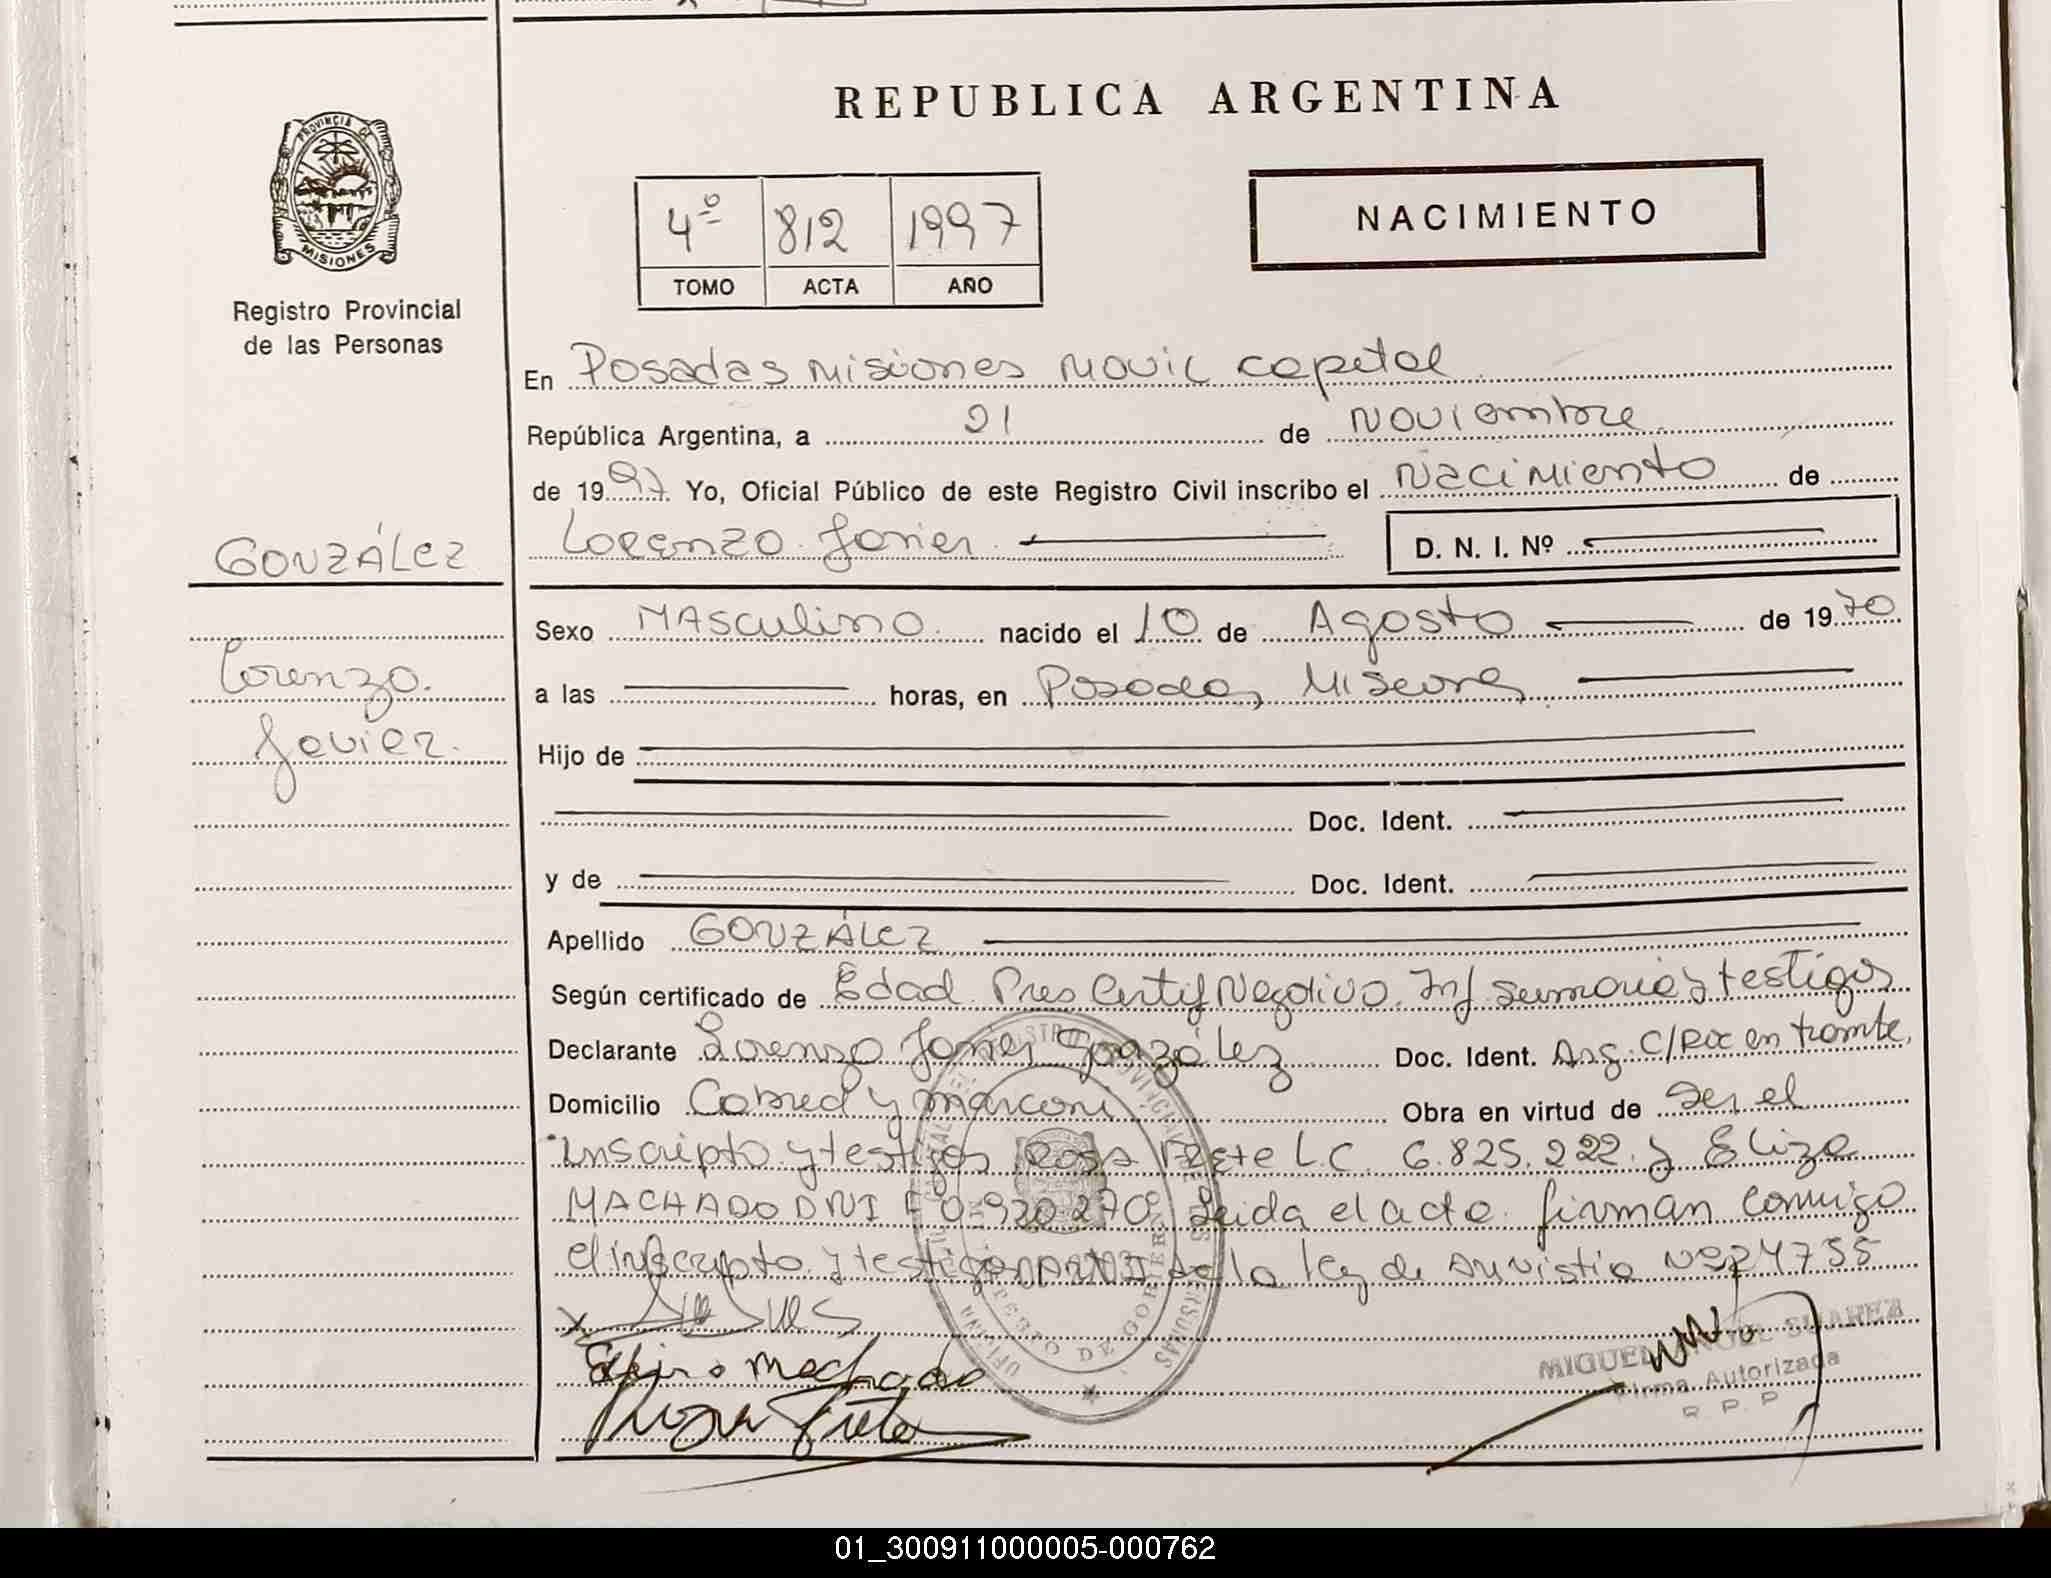 REPUBLICA ARGENTINA
PROVINCIA DE MISIONES
Registro Provincial
de las Personas
4º 812 1997
TOMO ACTA AÑO
NACIMIENTO
En Posadas Misiones Movil capital
República Argentina, a 21 de Noviembre
de 1997. Yo, Oficial Público de este Registro Civil inscribo el Nacimiento de
Lorenzo Javier
D. N. I. Nº
GONZÁLEZ
Lorenzo.
Javier.
Sexo MAsculino nacido el 10 de Agosto de 1970
a las horas, en Posadas, Misiones
Hijo de
Doc. Ident.
y de Doc. Ident.
Apellido GONZÁLEZ
Según certificado de Edad Pres Certif Negativo. Inf sumaria y testigos
Declarante Lorenzo Javier González Doc. Ident. Arg. C/Doc en tramte,
Domicilio Cabred y Marconi Obra en virtud de ser el
Inscripto y testigos Rosa L.C. 6.825.222. y Eliza
MACHADO DNI F 0.920.270 Leida el acta firman conmigo
el inscripto y testigos de la ley de Amnistia Nº 24755
x
Machado
MIGUEL ANGEL SUAREZ
Firma Autorizada
R. P. P
01_300911000005-000762